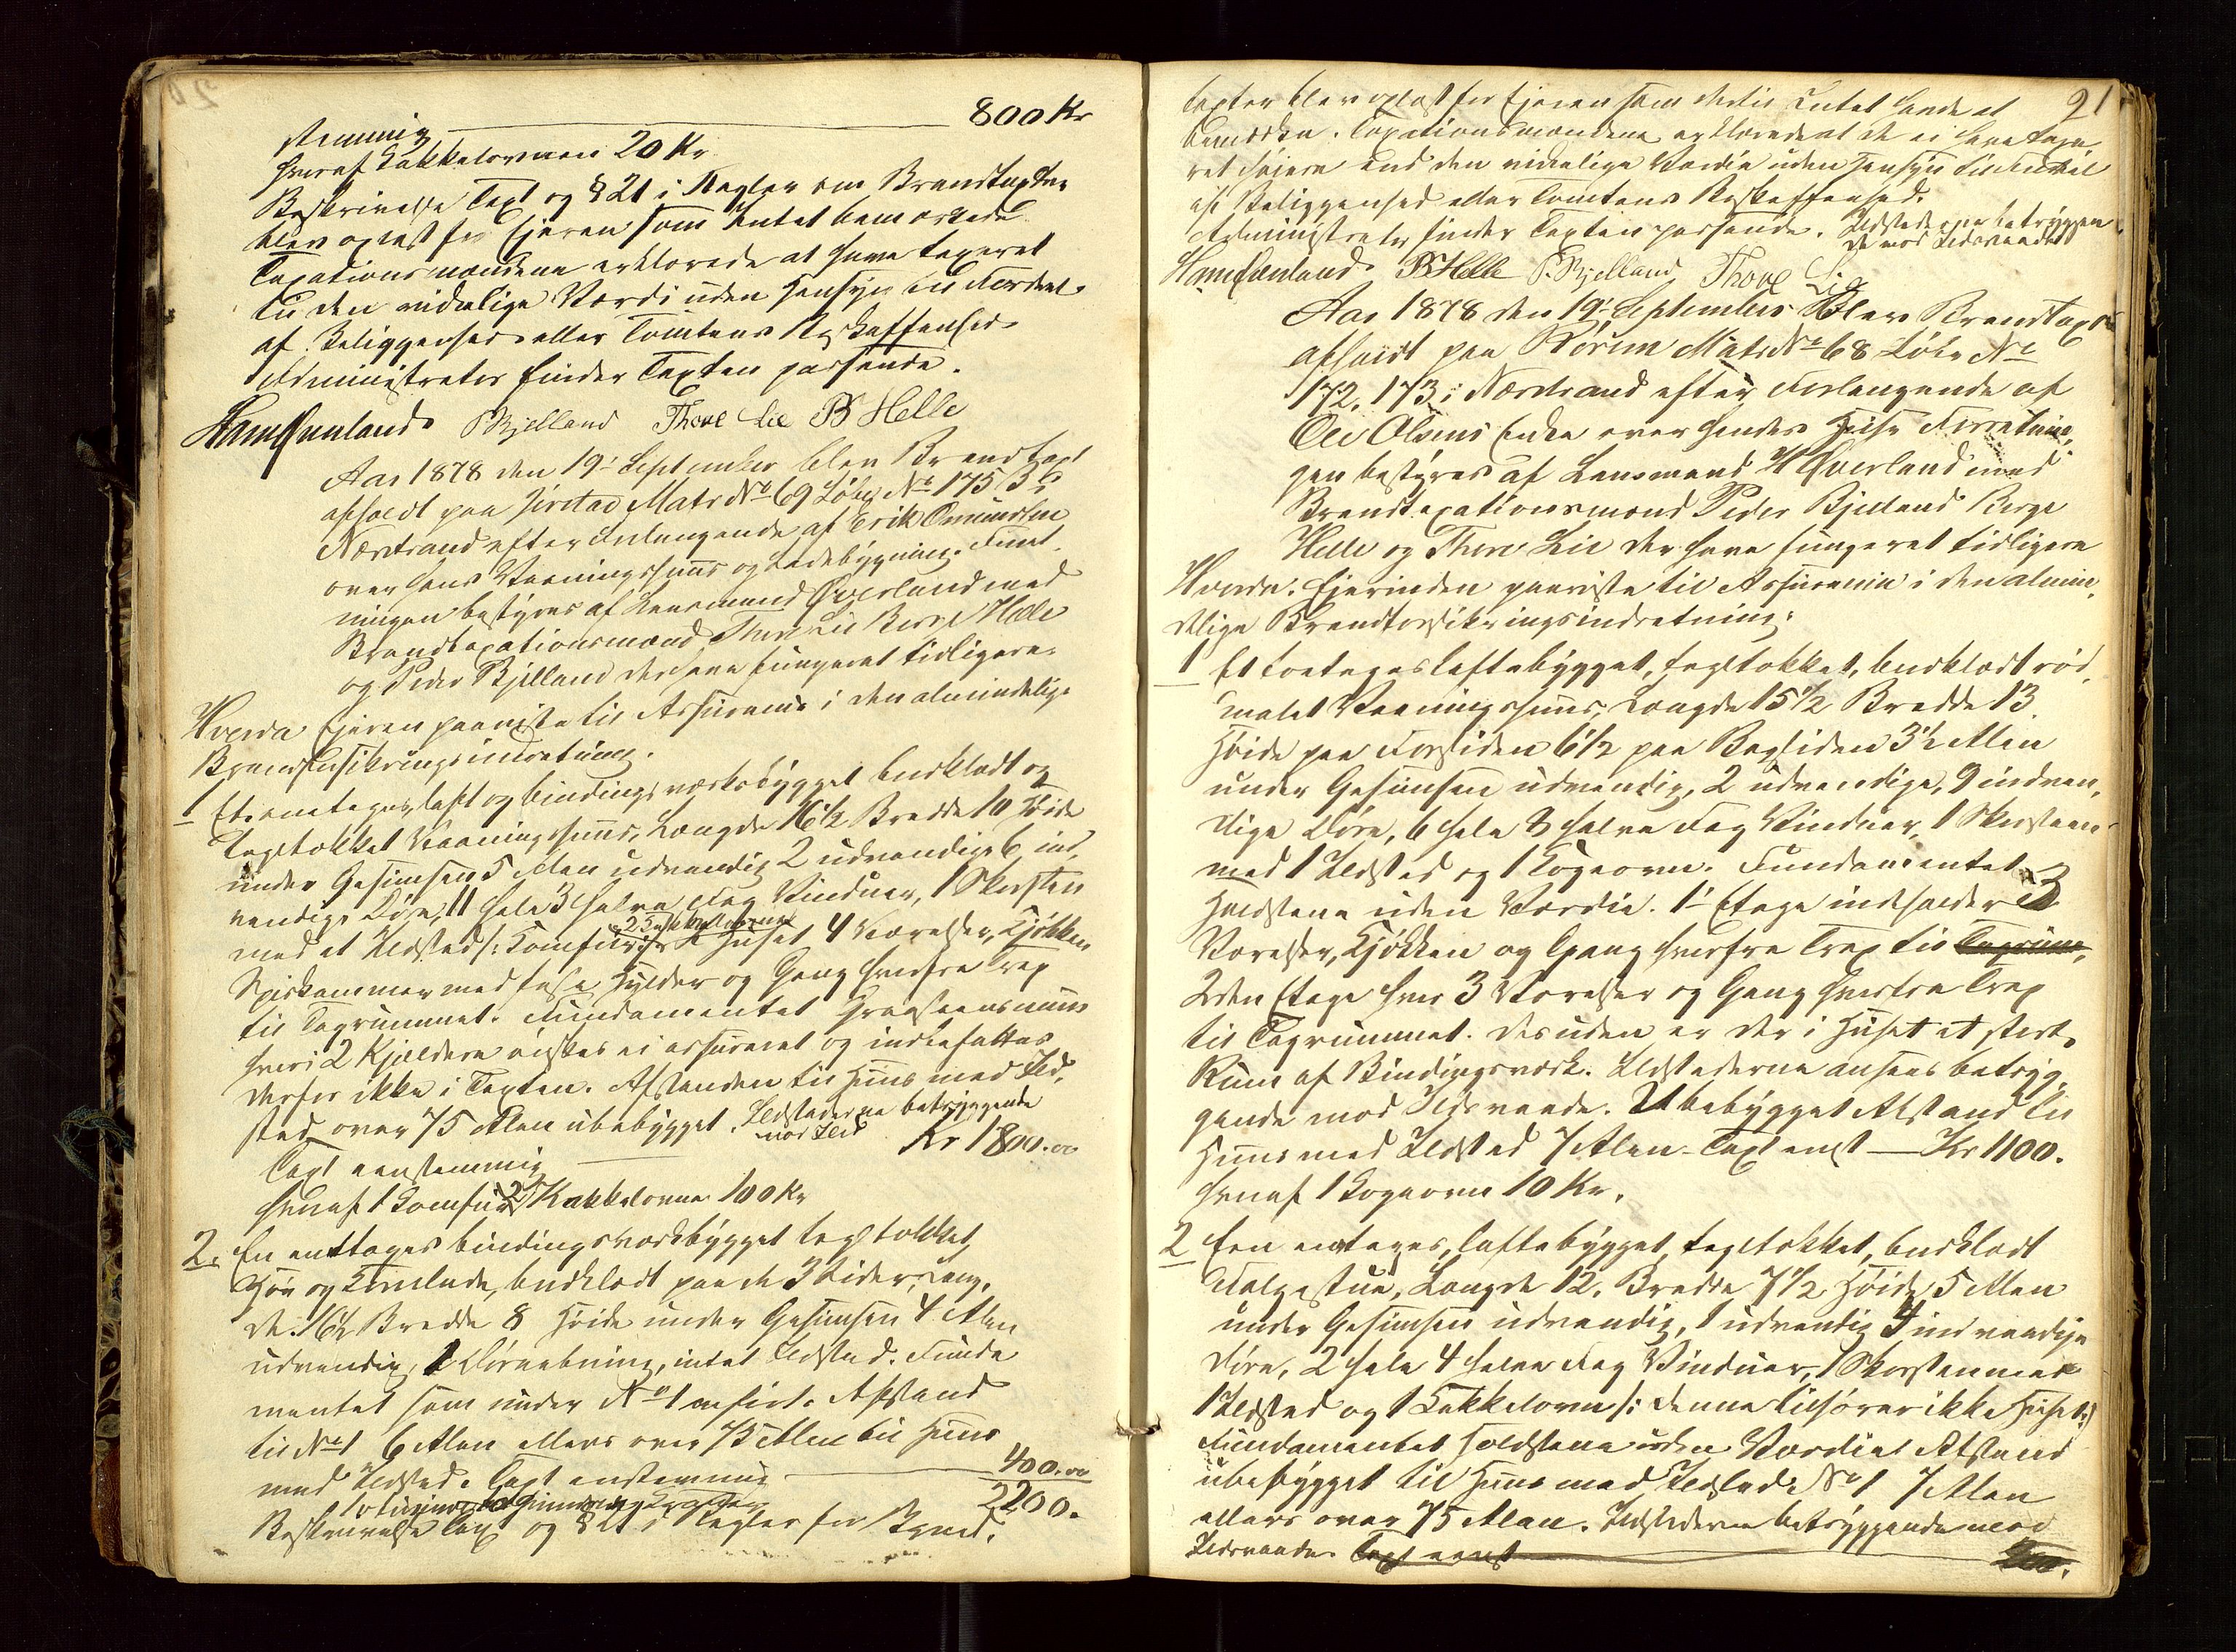 stemmig 800 Kr
hvoraf Kakkelovnen 20 Kr
Beskrivelse Taxt og § 21 i Regler om Brandtaxter
blev oplæst for Ejeren som Intet bemærkede
Taxationsmændene erklærede at have taxeret
til den virkelige Værdi uden Hensyn til Fordeel
af Beliggenhed eller Tomtens Beskaffenhed.
Administrator finder Taxten passende.
PBjelland Thore Lie B Helle
Aar 1878 den 19 September blev Brandtaxt
afholdt paa Jirstad Matr No 69 Løbe No 175 i
Nærstrand efter Forlangende af Erik Omundsen
over hans Vaaningshuus og Ladebygning. Forret-
ningen bestyres af Lensmand Qverland med
Brandtaxationsmænd Thore Lie Berge Helle
og Peder Bjelland der have fungeret tidligere.
Hvorda Ejeren paaviste til Assurance i den almindelige
Brandforsikringsindretning.
1 Et enetages, laft og bindingsværksbygget bordklædt og
tegltækket Vaaningshuus, Længde 16½ Bredde 10 Høide
under Gesimsen 5 Alen udvendig 2 udvendige 6 ind-
vendige Døre, 11 hele 3 halve Fag Vinduer, 1 Skorsten
2 Kakkelovne
med et Ildsted /: Komfur i Huset 4 Værelser, Kjøkken
Spiskammer med faste Hylder og Gang hvorfra Trap
til Tagrummet. Fundamentet Graasteensmuur
hvori 2 Kjeldere ønskes ei assureret og indbefattes
derfor ikke i Taxten. Afstanden til Huus med Ild-
sted over 75 Alen ubebygget. Ildstederne betryggende
mod Ild Kr 1800.00
Taxt eenstemmig
hvoraf 1 Komfur 2 Kakkelovne 100 Kr
2. En enetages bindingsværkbygget tegltækket
Høe og Kornlade, bordklædt paa de 3 Sider, Læng-
de 16½ Bredde 8 Høide under Gesimsen 4 Alen
udvendig, 1 Døraabning, intet Ildsted. Funda
mentet som under No 1 anført. Afstand
til No 1 6 Alen ellers over 75 Alen til Huus
med Ildsted. Taxt enstemmig 400.00
2200.
Beskrivelse Taxt og § 21 i Regler for Brand-
91
taxter blev oplæst for Ejeren som dertil Intet havde at
bemærke. Taxationsmændene erklærede at de ei have taxe-
ret høiere end den virkelige Værdie uden Hensyn til Fordel
af Beliggenhed eller Tomtens Beskaffenhed.
Administrator finder Taxten passende. Ildstederne betryggen-
de mod Ildsvaade
B Helle P. Bjelland Thore Lie
Aar 1878 den 19 September Blev Brandtaxt
afholdt paa Rørum Matr No 68 Løbe No
172. 173 i Nærstrand efter Forlangende af
Ole Olsens Enke over hendes Huse Forretnin-
gen bestyres af Lensmand H Qverland med
Brandtaxationsmænd Peder Bjelland Berge
Helle og Thore Lie der have fungeret tidligere
Hvorda. Ejerinden paaviste til Assurance i den almin-
delige Brandforsikringsindretning:
1 Et toetages laftebygget, tegltækket, bordklædt rød-
malet Vaaningshuus, Længde 15½ Bredde 13.
Høide paa Forsiden 6½ paa Bagsiden 3½ Alen
under Gesimsen udvendig, 2 udvendige, 9 indven-
dige Døre, 6 hele 8 halve Fag Vinduer, 1 Skorsteen
med 1 Ildsted og 1 Kogeovn. Fundamentet
Holdstene uden Værdie. 1 Etage indeholder 3
Værelser, Kjøkken og Gang hvorfra Trap til Tagrum-
2den Etage hvor 3 Værelser og Gang hvorfra Trap
til Tagrummet. Desuden er der i Huset et stort
Rum af Bindingsværk. Ildstederne ansees betryg-
gende mod Ildsvaade. Ubebygget Afstand til
Huus med Ildsted 7 Alen - Taxt enst Kr 1100.
hvoraf 1 Kogeovn 10 Kr.
2 Een enetages, laftebygget, tegltækket, bordklædt
Folgestue, Længde 12. Bredde 7½ Høide 5 Alen
under Gesimsen udvendig, 1 udvendig 4 indvendige
Døre, 2 hele 4 halve Fag Vinduer, 1 Skorsten med
1 Ildsted og 1 Kakkelovn /: denne tilhører ikke Huset :/
Fundamentet Holdstene uden Værdie Afstand
ubebygget til Huus med Ildsted No 1 7 Alen
ellers over 75 Alen. Ildstederne betryggende mod
Ildsvaade. Taxt eenst